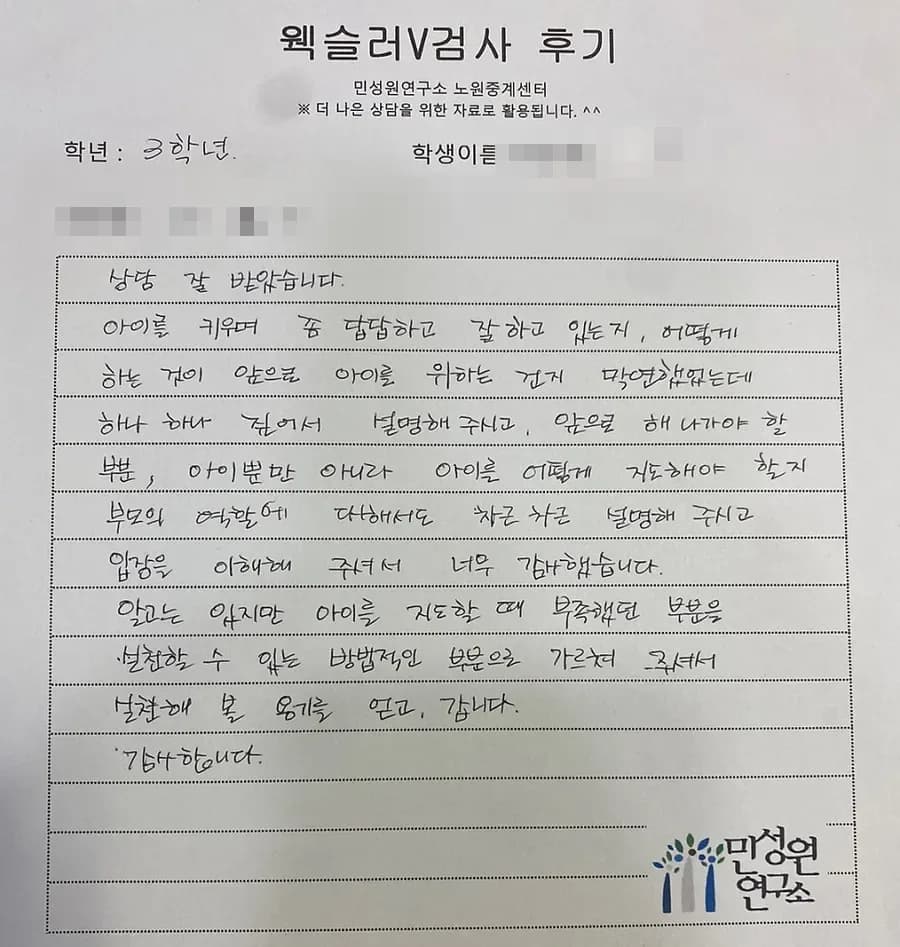 웩슬러V검사 후기
민성원연구소 노원중계센터
※ 더 나은 상담을 위한 자료로 활용됩니다. ^^
학년 : 3학년. 학생이름
상담 잘 받았습니다.
아이를 키우며 좀 답답하고 잘 하고 있는지, 어떻게
하는 것이 앞으로 아이를 위하는 건지 막연했었는데
하나 하나 짚어서 설명해 주시고, 앞으로 해 나가야 할
부분, 아이뿐만 아니라 아이를 어떻게 지도해야 할지
부모의 역할에 대해서도 차근 차근 설명해 주시고
입장을 이해해 주셔서 너무 감사했습니다.
알고는 있지만 아이를 지도할 때 부족했던 부분을
실천할 수 있는 방법적인 부분으로 가르쳐 주셔서
실천해 볼 용기를 얻고, 갑니다.
감사합니다.
민성원
연구소